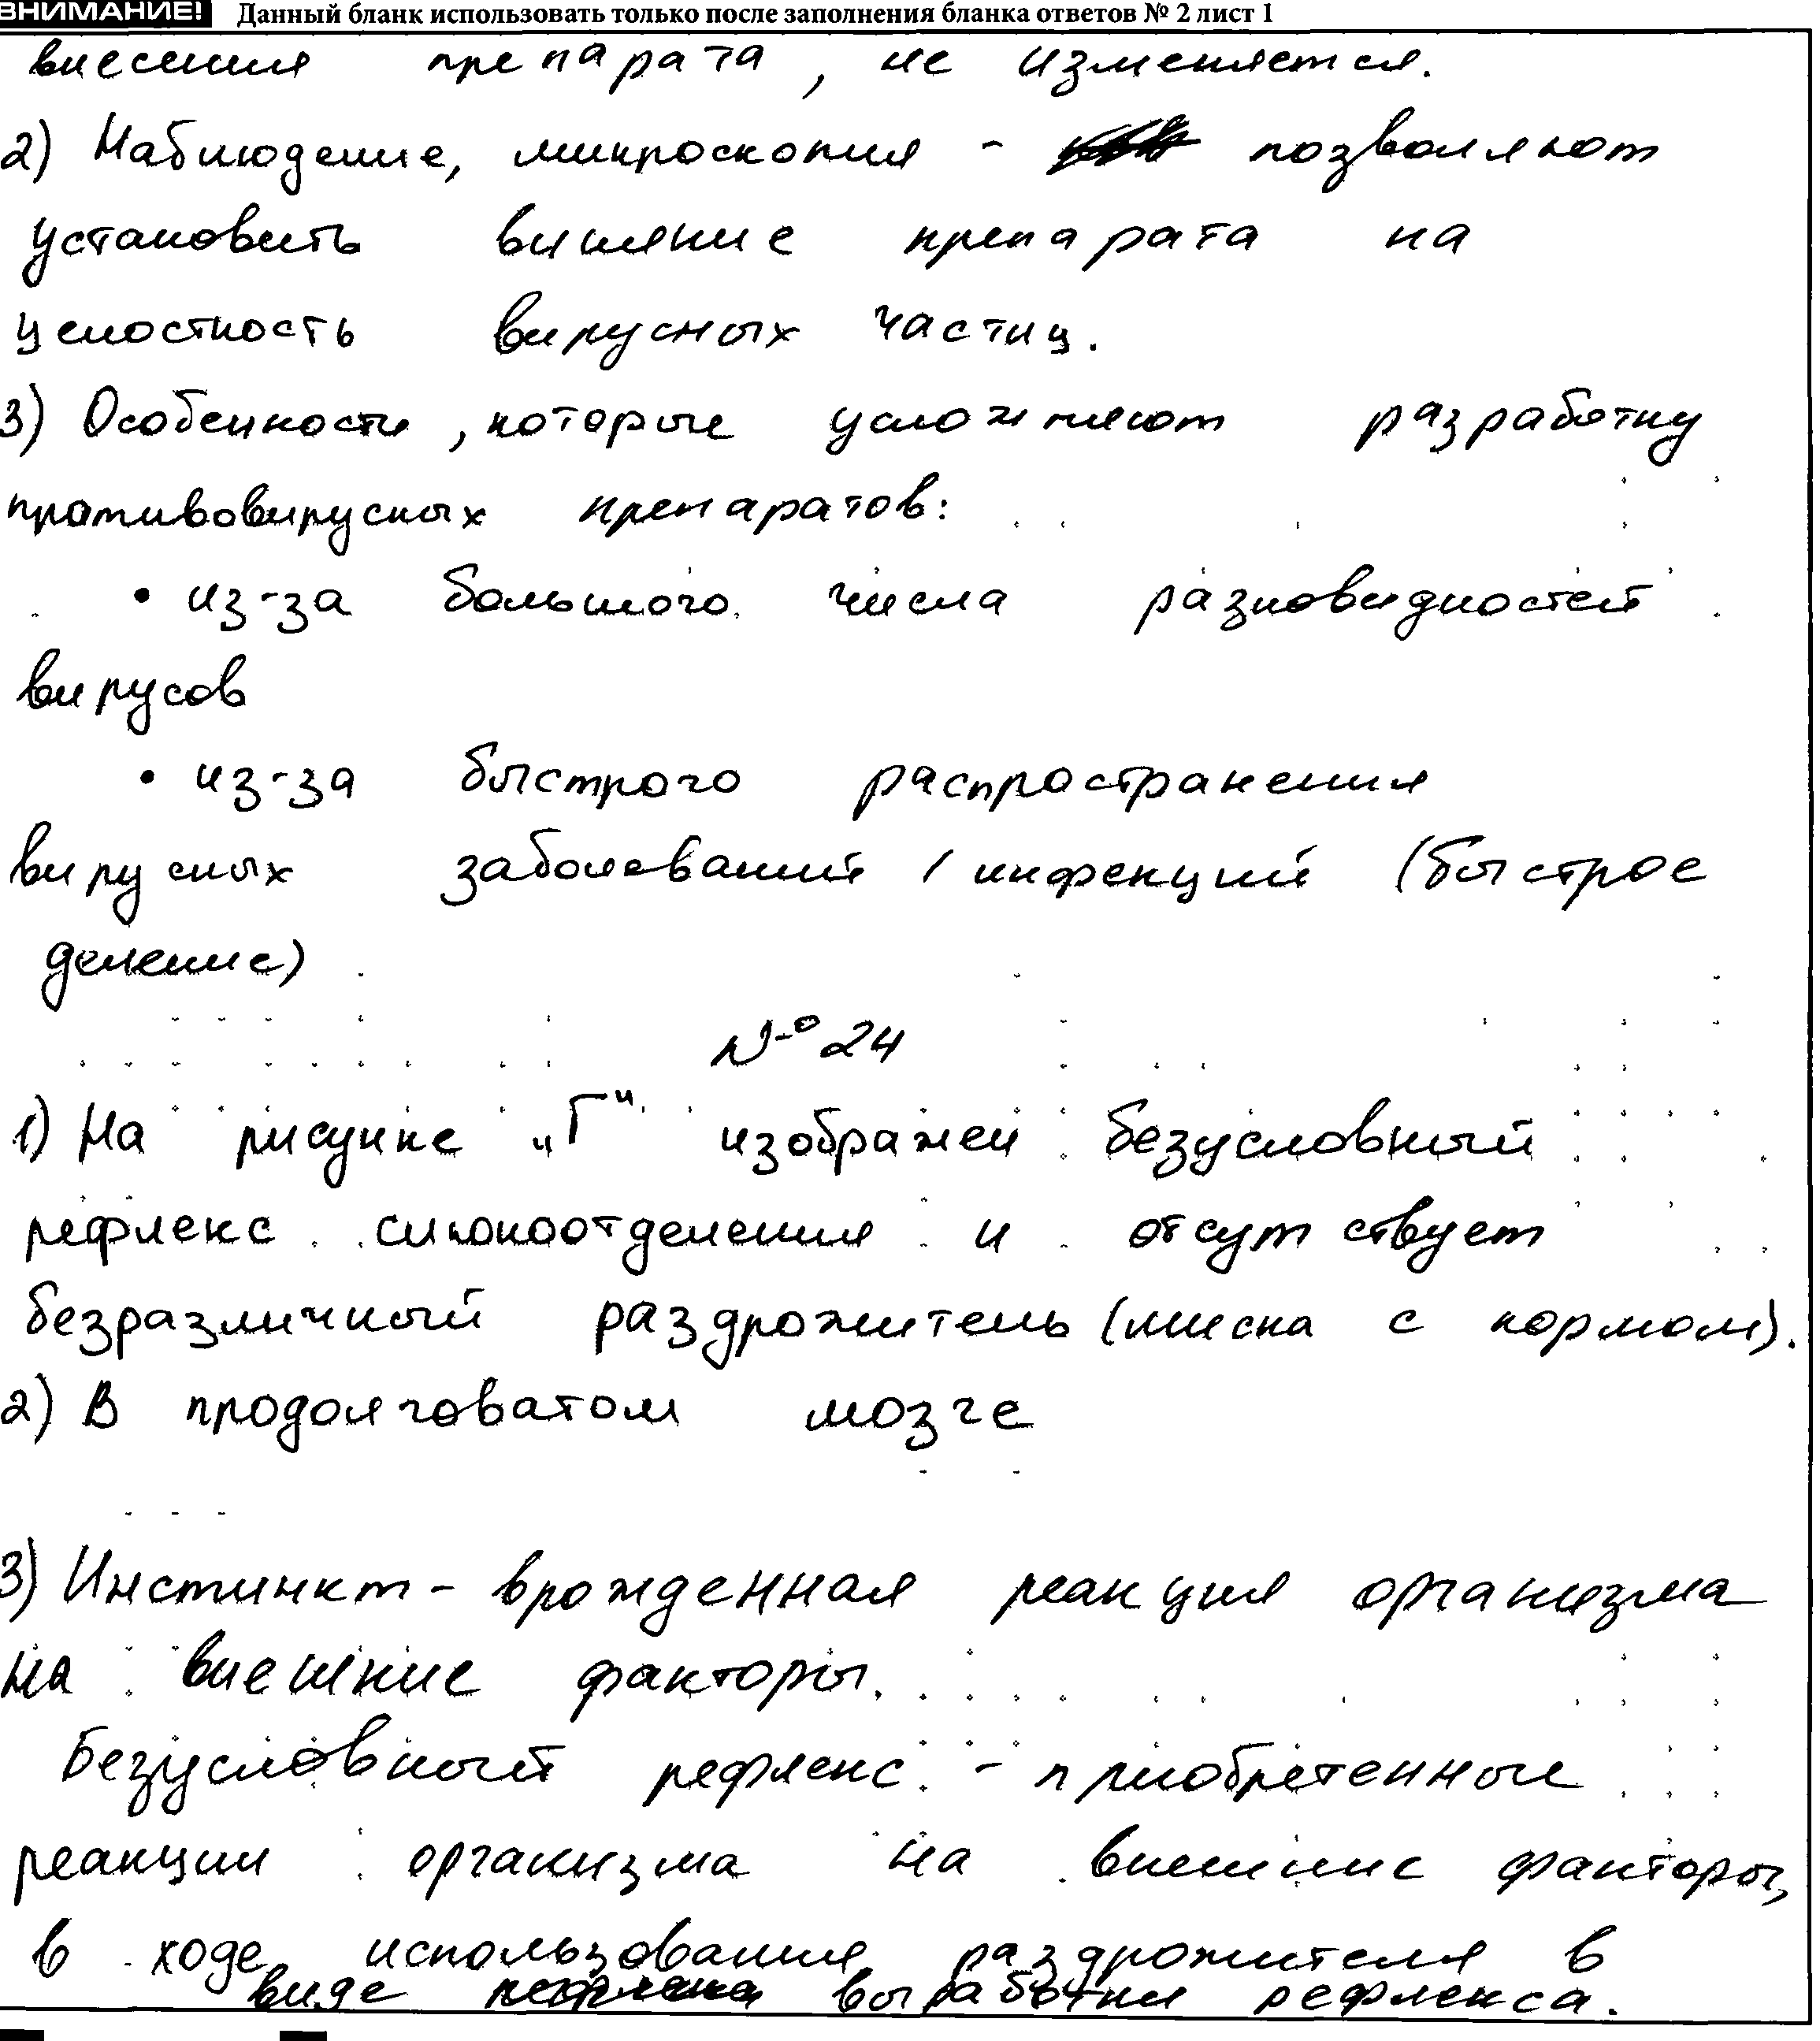 ВНИМАНИЕ! Данный бланк использовать только после заполнения бланка ответов № 2 лист 1
внесения препарата, не изменяется.
2) Наблюдение, микроскопия - позволяют
установить влияние препарата на
целостность вирусных частиц.
3) Особенности, которые усложняют разработку
противовирусных препаратов:
• из-за большого числа разновидностей
вирусов
• из-за быстрого распространения
вирусных заболеваний / инфекций (быстрое
деление)
№ 24
1) На рисунке „Г" изображен безусловный
рефлекс слюноотделения и отсутствует
безразличный раздрожитель (миска с кормом).
2) В продолговатом мозге
3) Инстинкт - врожденная реакция организма
на внешние факторы.
Безусловный рефлекс - приобретенные
реакции организма на внешние факторы,
в ходе использования раздрожителя в
виде выработки рефлекса.